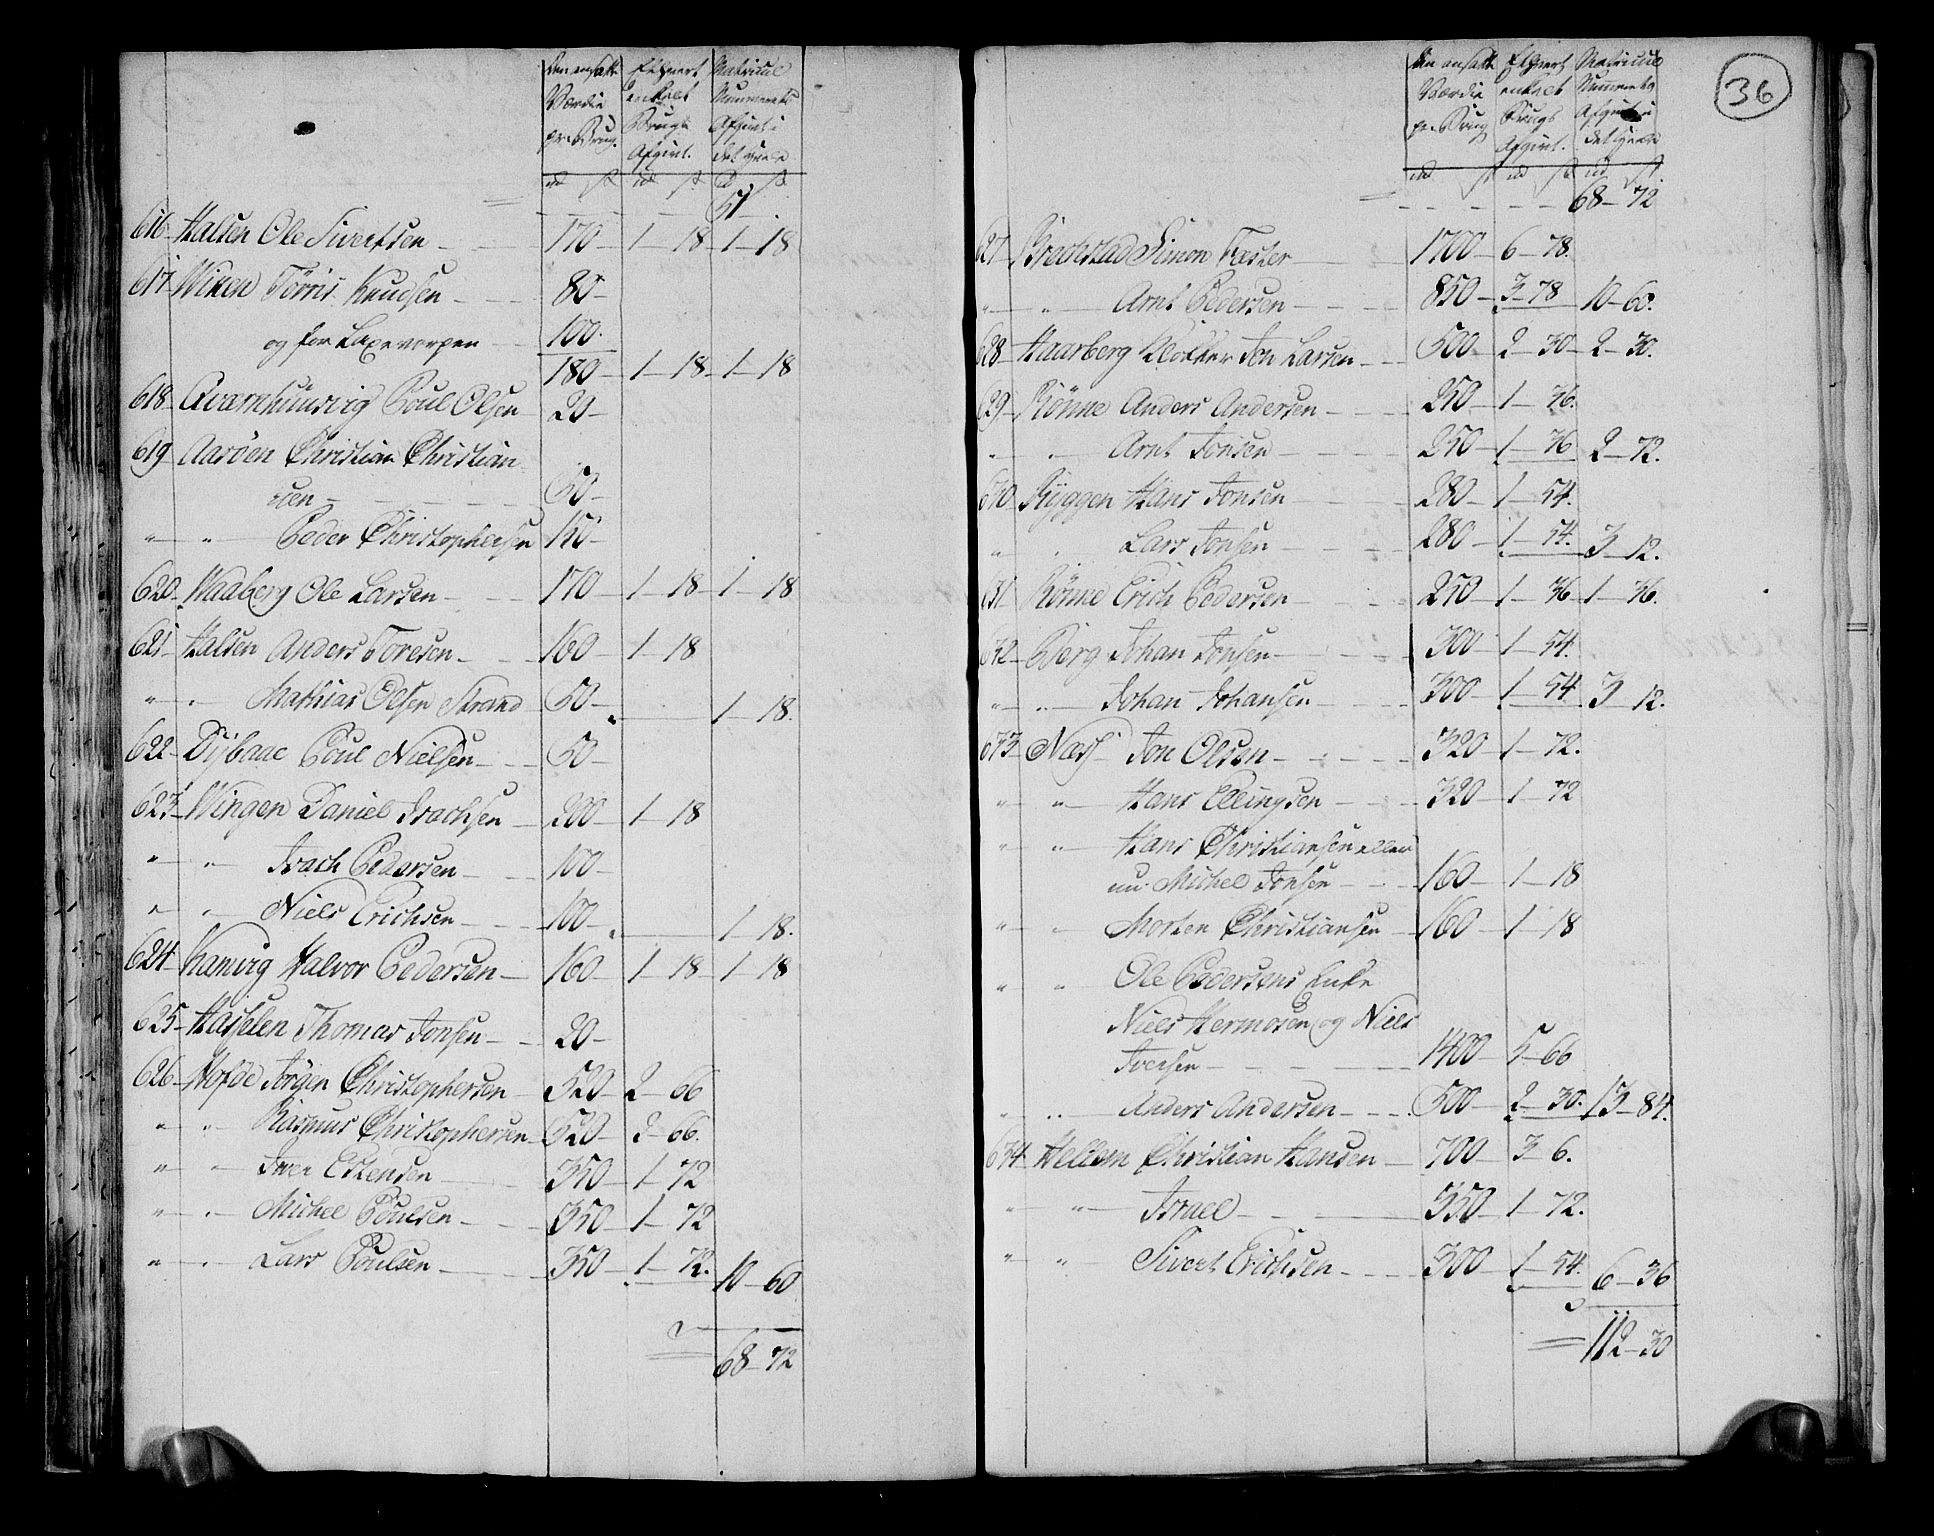 den ansatte Værdie pr. Brug. | Ethvert enkelt Brugs Afgivt. | Matricul Nummerets Afgivt i det heele
rd ſk | rd ſk | rd ſk
51
616 Halsen Ole Sivertsen - 170 - 1 - 18 - 1 - 18
617 Wiken Törris Knudsen - 80 -
og for Laxevorpen - 100.
180 - 1 - 18 - 1 - 18
618 Qværnhuusvig Poul Olsen 20 -
619 Aaröen Christian Christian
sen - 50 -
" " Peder Christophersen 150 -
620 Waaberg Ole Larsen - 170 - 1 - 18 - 1 - 18
621 Halsen Anders Toresen - 160 - 1 - 18
" " Mathias Olsen Strand 50 - 1 - 18.
622 Poul Nielsen - 50 -
623 Wingen Daniel Isachsen - 200 - 1 - 18
" " Isach Pedersen - 100 -
" " Niels Erichsen - 100 - 1 - 18.
624 Halvor Pedersen - 160 - 1 - 18 - 1 - 18
625 Hasselen Thomas Jonsen - 20 -
626 Hofde Jörgen Christophersen - 520 - 2 - 66
" " Rasmus Christophersen - 520 - 2 - 66.
" " Iver Estensen - 350 - 1 - 72
" " Michel Poulsen - 350 - 1 - 72
" " Lars Poulsen - 350 - 1 - 72. 10 - 60
68 - 72
36
den ansatte Værdie pr. Brug | Ethvert enkelt Brugs Afgivt. | Matricul Nummerets Afgivt i det heele
rd ſk | rd ſk | rd ſk
68 - 72
627 Simon Fæster - 1700 - 6 - 78.
" " Arnt Pedersen - 850 - 3 - 78 10 - 60.
628 Haarberg Klokker Jon Larsen - 500 - 2 - 30 - 2 - 30.
629 Rönne Anders Andersen - 250 - 1 - 36.
" " Arnt Jonsen - 250 - 1 - 36 2 - 72.
630 Ryggen Hans Jonsen - 280 - 1 - 54.
" " Lars Jonsen - 280 - 1 - 54. 3 - 12.
631 Rönne Erich Pedersen - 250 - 1 - 36 1 - 36.
632 Berg Johan Jonsen - 300 - 1 - 54.
" " Johan Johansen - 300 - 1 - 54 3 - 12.
633 Næss Jon Olsen - 320 - 1 - 72.
" " Hans Ellingsen - 320 - 1 - 72
" " Hans Christiansen eller
nu Michel Jonsen - 160 - 1 - 18
" " Morten Christiansen - 160 - 1 - 18
" " Ole Pedersens Enke
Niels Hermosen og Niels
Iversen - 1400 - 5 - 66
" " Anders Andersen - 500 - 2 - 30. 13 - 84.
634 Hellem Christian Hansen - 700 - 3 - 6.
" " Israel - 350 - 1 - 72.
" " Sivert Erichsen - 300 - 1 - 54. 6 - 36
112 - 30